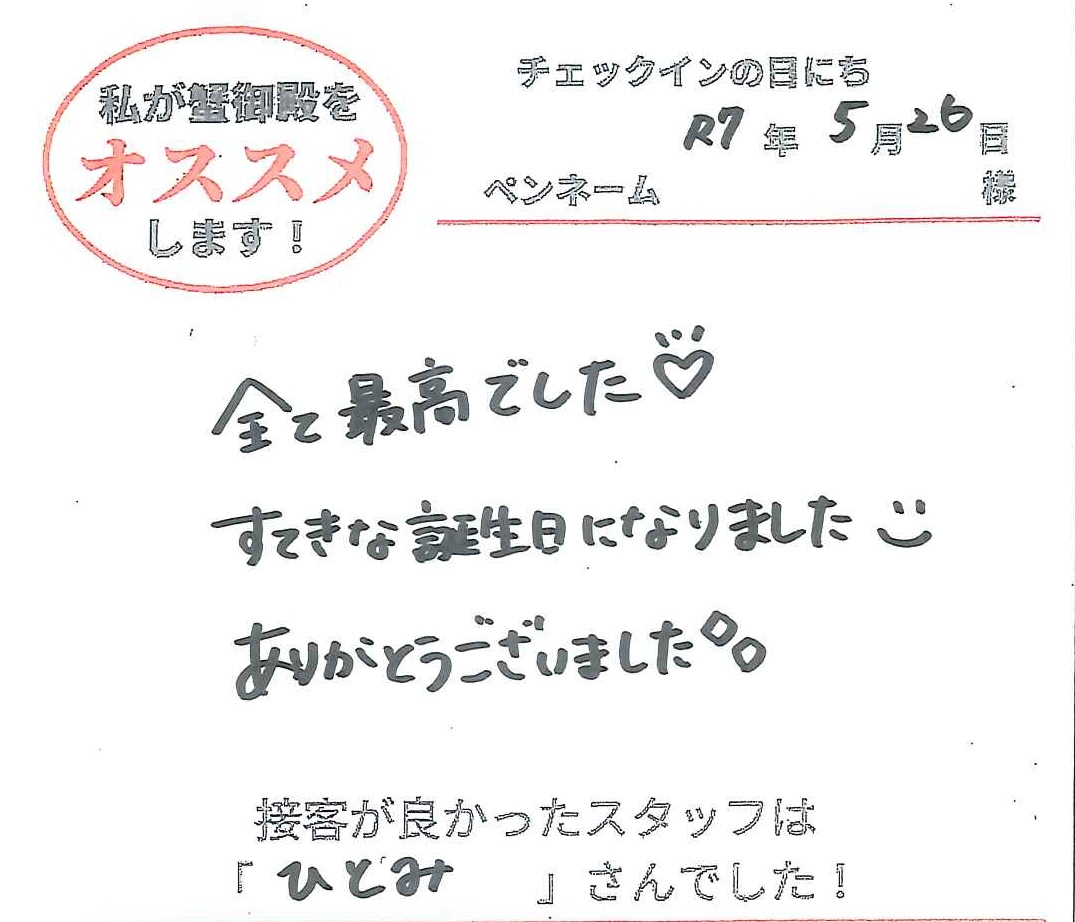 私が蟹御殿を
オススメ
します！
チェックインの日にち
R7年 5月26日
ペンネーム 様
全て最高でした♡
すてきな誕生日になりました
ありがとうございました
接客が良かったスタッフは
「ひとみ」さんでした！